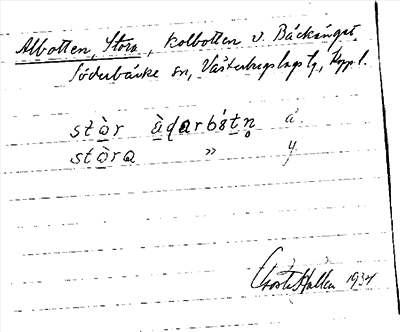 Albotten, Stora, kolbotten v. Bäckänget,
Söderbärke sn, Västerbergslags tg, Kppl.
stòr àdarbȯ́tn̥ ä.
stòra " y.
1934